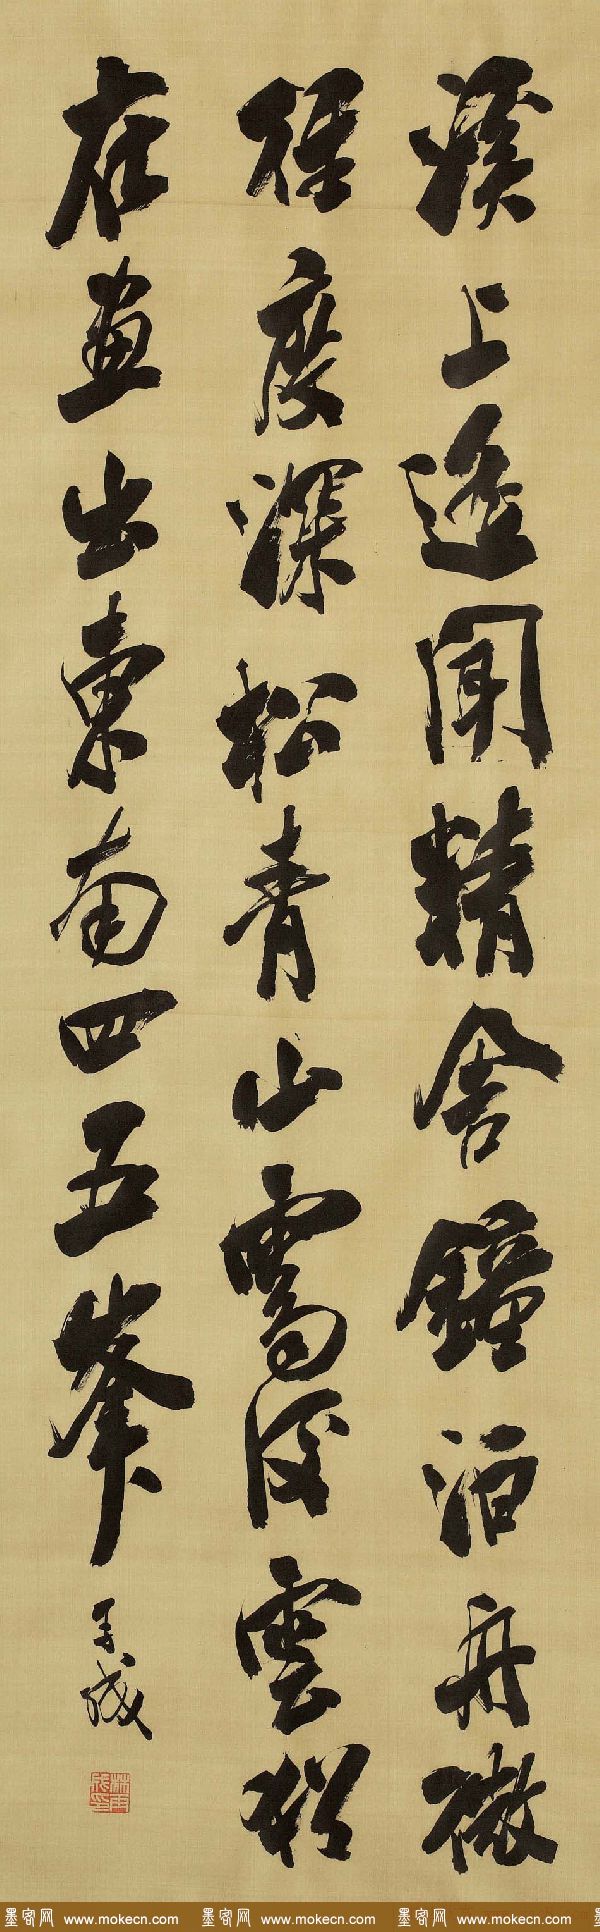 溪上遙聞精舍鐘泊舟微
徑度深松青山霽後雲猶
在畫出東南四五峯
墨客网 www.mokecn.com 墨客网 www.mokecn.com 墨客网 www.mokecn.com